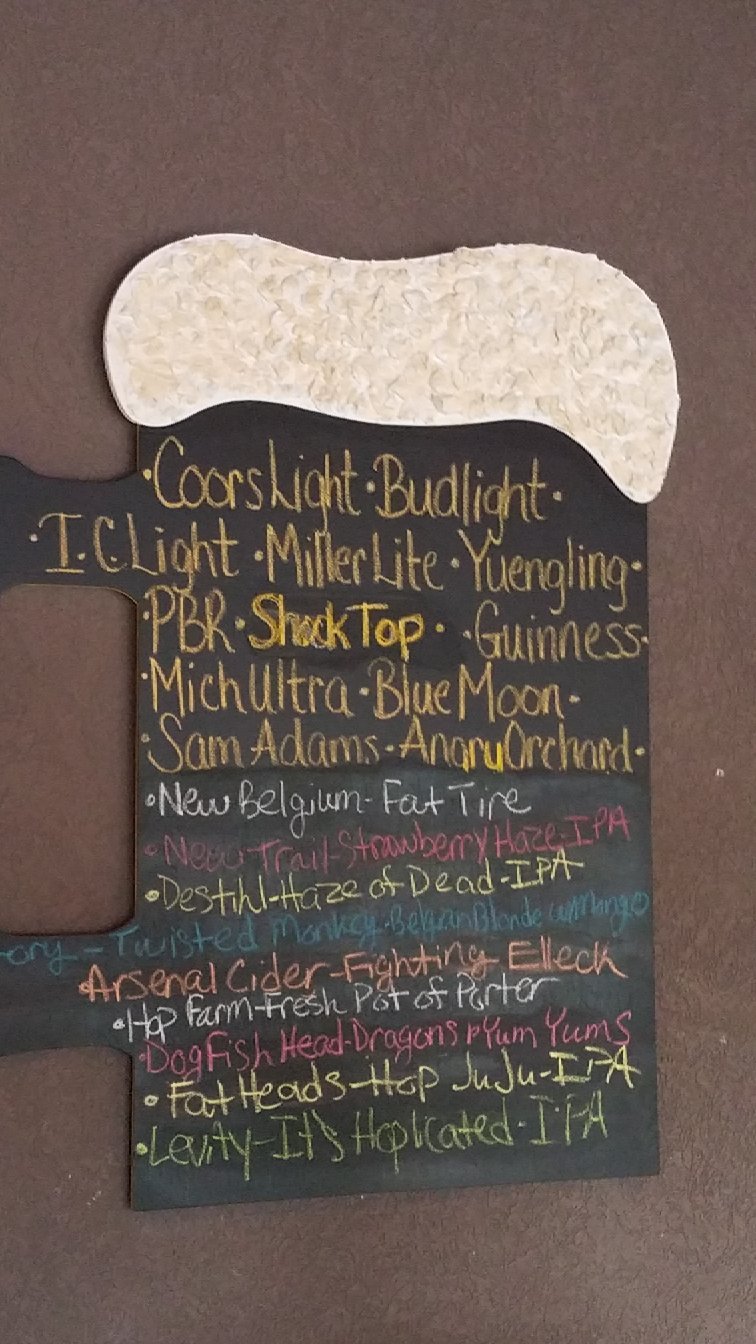 ·Coors Light·Budlight·
·I.C.Light·Miller Lite·Yuengling·
·PBR·Shock Top· ·Guinness·
·Mich Ultra·Blue Moon·
·Sam Adams·Angry Orchard·
·New Belgium-Fat Tire
·New Trail-Strawberry Haze-IPA
·Destihl-Haze of Dead-IPA
ory-Twisted Monkey-Belgian Blonde w/Mango
·Arsenal Cider-Fighting Elleck
·Hop Farm-Fresh Pot of Porter
·DogFish Head-Dragons & Yum Yums
·Fat Heads-Hop JuJu-IPA
·Levity-It's Hoplicated-IPA